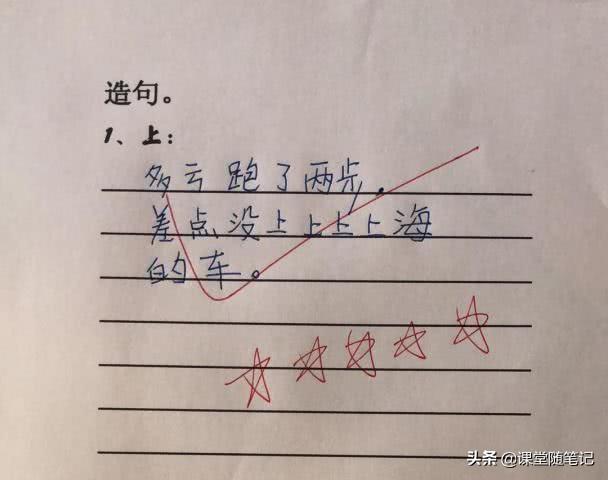 造句。
1、上：
多亏跑了两步，
差点没上上上上海
的车。
头条 @课堂随笔记